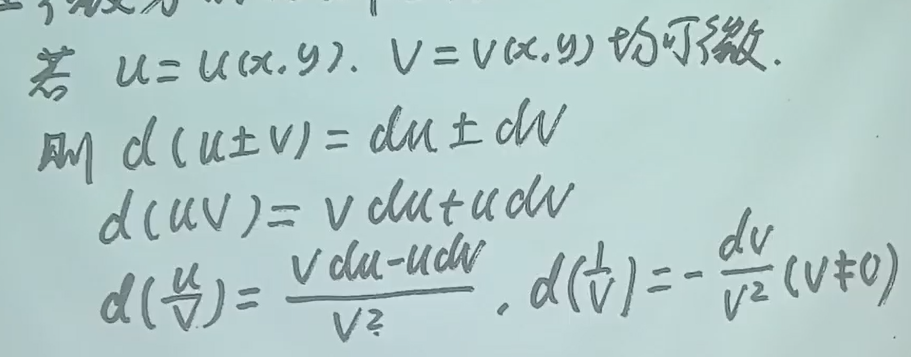 若 u=u(x,y). v=v(x,y)均可微.
则 d(u±v)=du±dv
d(uv)=vdu+udv
d(u/v)=(vdu-udv)/v², d(1/v)=-dv/v²(v≠0)